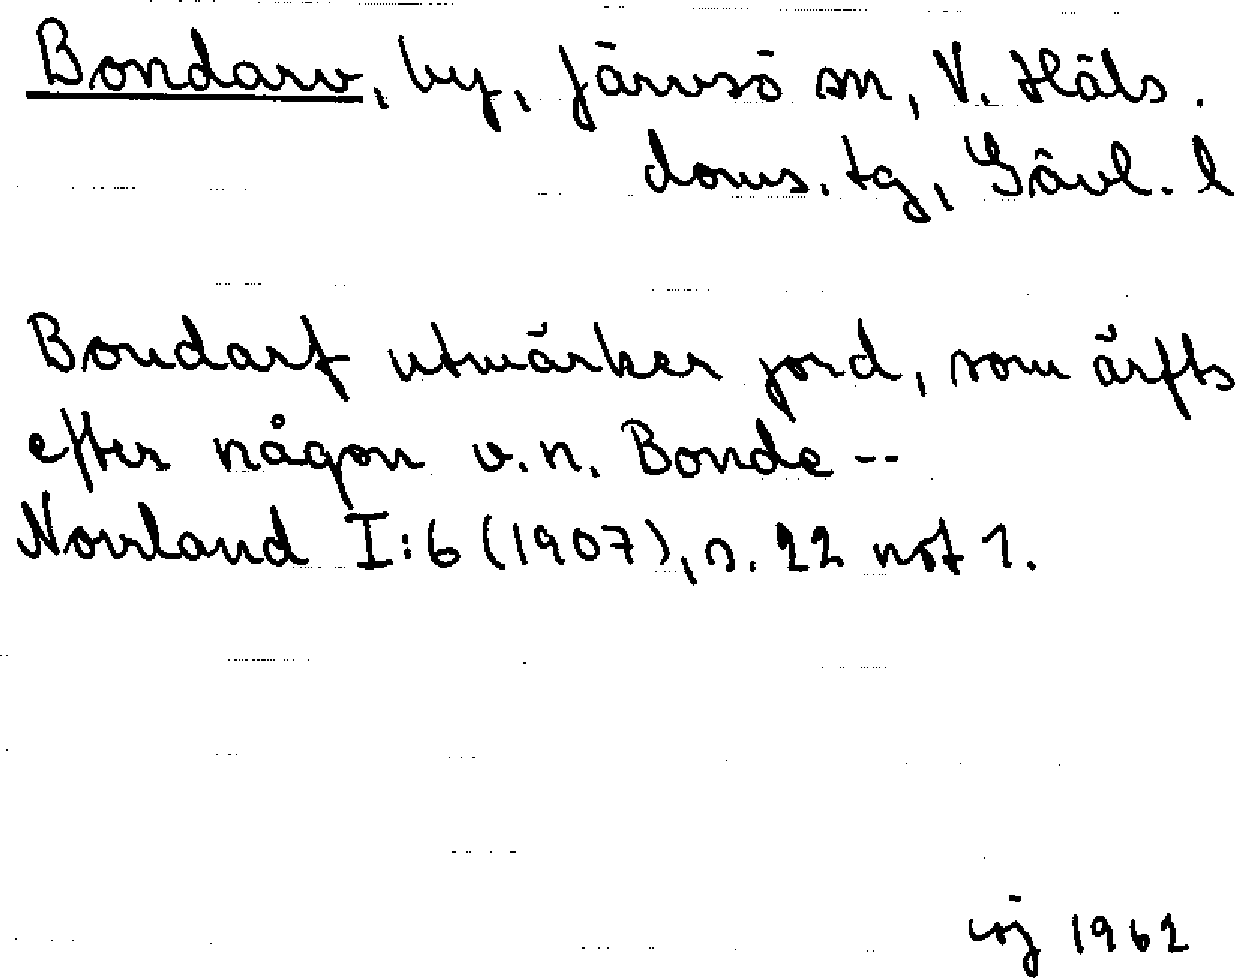 Bondarv, by, Järvsö sn, V. Häls.
doms. tg, Gävl. l
Bondarf utmärker jord, som ärfts
efter någon v.n. Bonde --
Norrland I:6 (1907), s. 22 not 1.
1962